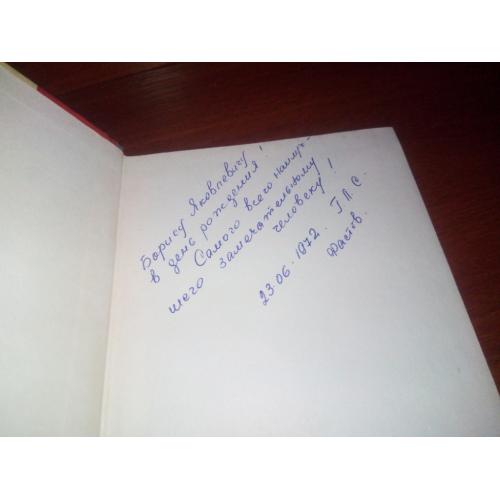 Борису Яковлевичу!
в день рождения
Самого всего наилуч-
шего замечательному
человеку!
23.06.1972. Г.П.С.
Фастов.